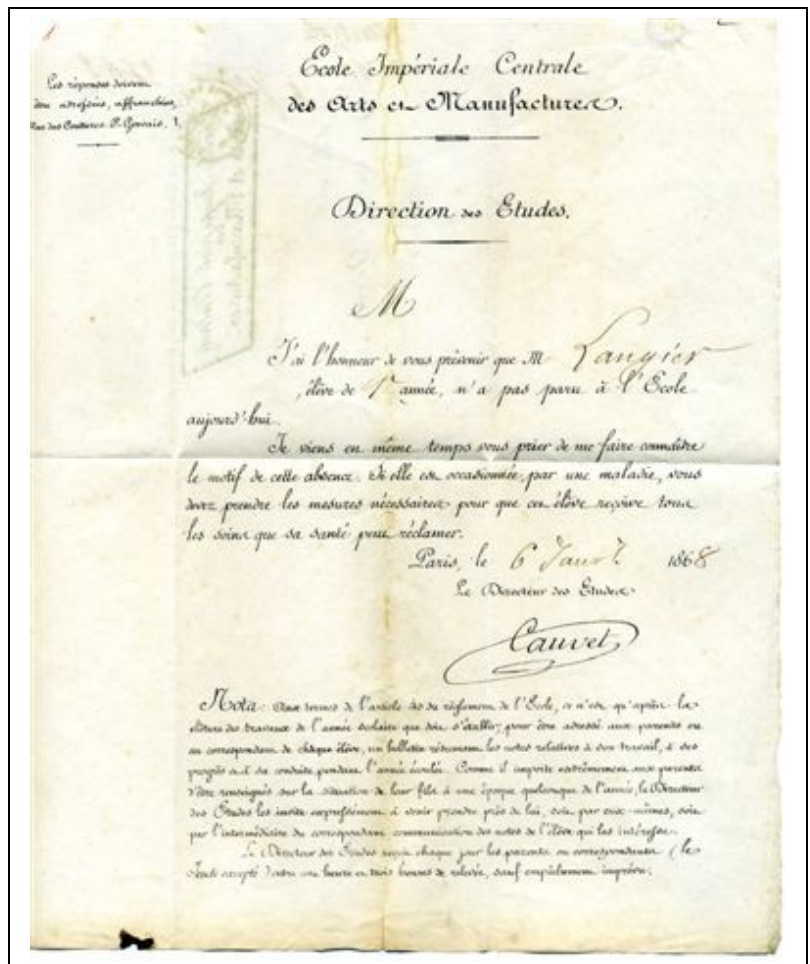 Les réponses doivent
être adressées, affranchies,
Rue des Coutures St Gervais, 1.
École Impériale Centrale
des Arts et Manufactures.
Direction des Études.
M
J'ai l'honneur de vous prévenir que M Laugier
élève de 1re année, n'a pas paru à l'École
aujourd'hui.
Je viens en même temps vous prier de me faire connaître
le motif de cette absence. Si elle est occasionnée par une maladie, vous
devez prendre les mesures nécessaires pour que cet élève reçoive tous
les soins que sa santé peut réclamer.
Paris, le 6 Janv. 1868
Le Directeur des Études
Cauvet
Nota: Aux termes de l'article du règlement de l'École, ce n'est qu'après la
clôture des travaux de l'année scolaire que doit s'établir, pour être adressé aux parents ou
au correspondant de chaque élève, un bulletin résumant les notes relatives à son travail, à ses
progrès et à sa conduite pendant l'année écoulée. Comme il importe extrêmement aux parents
d'être renseignés sur la situation de leur fils à une époque quelconque de l'année, le Directeur
des Études les invite expressément à venir prendre près de lui, soit par eux-mêmes, soit
par l'intermédiaire du correspondant communication des notes de l'élève qui les intéresse.
Le Directeur des Études reçoit chaque jour les parents ou correspondants (le
Jeudi excepté) entre une heure et trois heures de relevée, sauf empêchement imprévu.